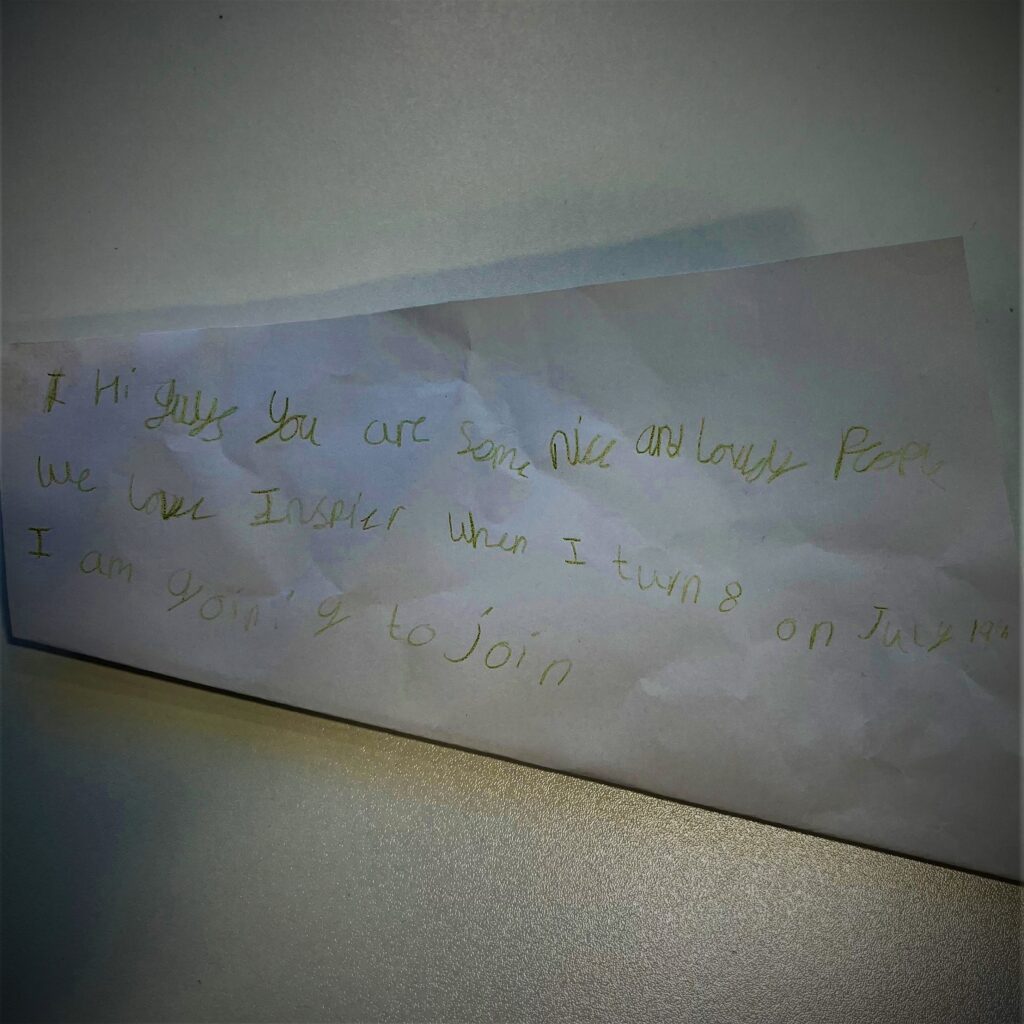 I Hi guys you are some nice and lovely People
We love Inspier When I turn 8 on July 19th
I am going to join